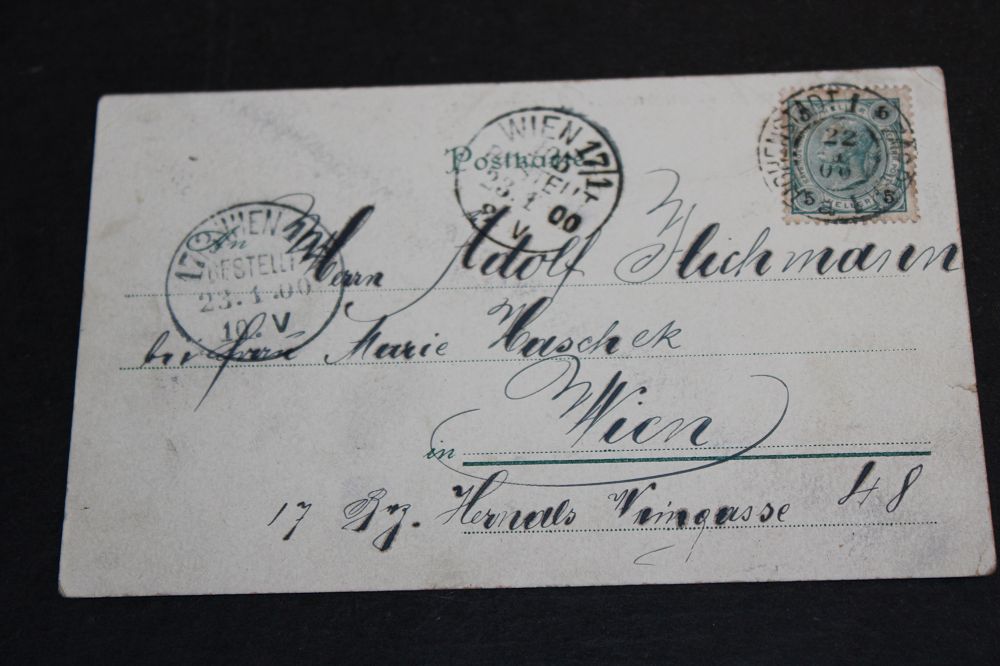 Postkarte
WIEN 17/1
BESTELLT
23. 1 00
8 V
WIEN
17/2
BESTELLT
23. 1. 00
10. V
22
00
5 5
HELLER
5 5
An Herrn Adolf Ilichmann
bei Frau Marie Haschek
in Wien
17 Bez. Hernals Weingasse 48